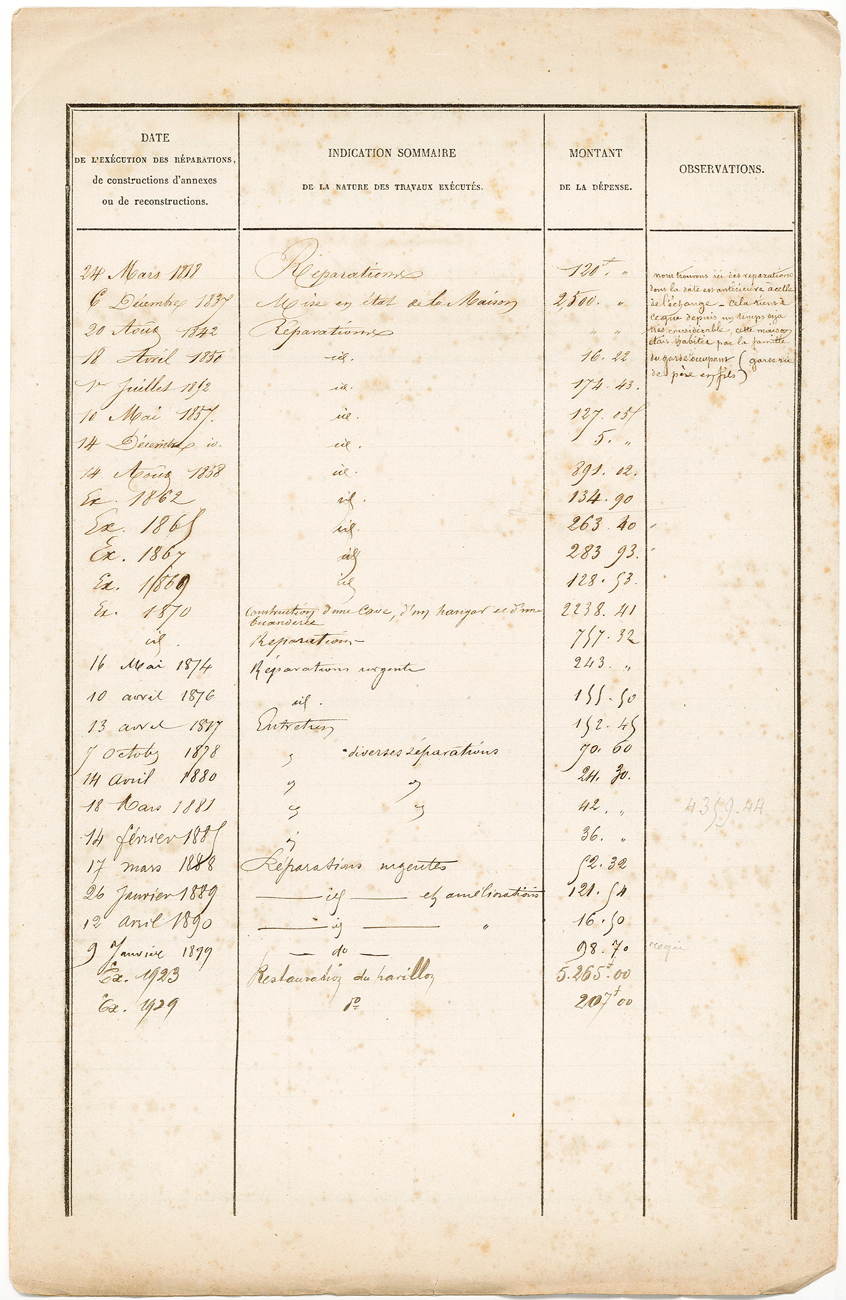 DATE
DE L'EXÉCUTION DES RÉPARATIONS,
de constructions d'annexes
ou de reconstructions.
INDICATION SOMMAIRE
DE LA NATURE DES TRAVAUX EXÉCUTÉS.
MONTANT
DE LA DÉPENSE.
OBSERVATIONS.
24 Mars 1818 Réparations 120f. "
6 Décembre 1837 Mise en état de la Maison 2,500. "
20 Août 1842 Réparations " "
18 Avril 1850 id. 16. 22
1er Juillet 1852 id. 174. 43.
10 Mai 1857. id. 127. 05
14 Décembre id. id. 5. "
14 Août 1858 id. 891. 02.
Ex. 1862 id. 134. 90
Ex. 1865 id 263. 40
Ex. 1867 id 283 93.
Ex. 1869 id 128. 53.
Ex. 1870 Construction d'une Cave, d'un hangar et d'une
buanderie 2238. 41
id. Réparations 757. 32
16 Mai 1874 Réparations urgente 243. "
10 avril 1876 id. 155. 50
13 avril 1877 Entretien 152. 45
7 Octobre 1878 " diverses réparations 70. 60
14 Avril 1880 " " 24. 30.
18 Mars 1881 " " 42. "
14 février 1885 " 36. "
17 mars 1888 Réparations urgentes 52. 32
26 Janvier 1889 id et améliorations 121. 54
12 Avril 1890 id " 16. 50
9 Janvier 1899 do 98. 70
Ex. 1923 Restauration du pavillon 5.265f.00
Ex. 1929 do 207f00
nous trouvons ici des réparations
dont la date est antérieure à celle
de l'échange - cela tient à
ce que depuis un temps déjà
très considérable, cette maison
était habitée par la famille
du garde occupant (gardes
de père en fils)
4359.44